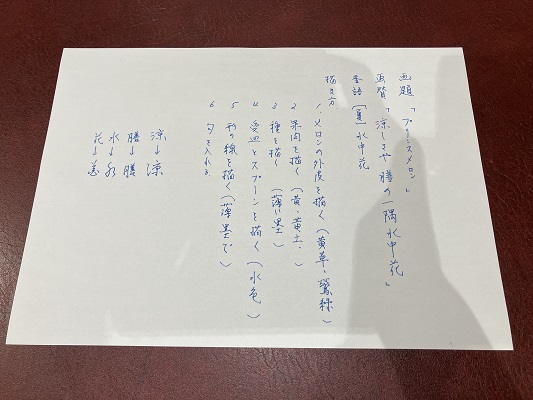 画題 「プリンスメロン」
画賛 「涼しさや膳の一隅水中花」
季語 [夏] 水中花
描き方
1、メロンの外皮を描く(黄草、鶯緑)
2 果肉を描く(黄、黄土、)
3 種を描く(薄い墨)
4 受皿とスプーンを描く(水色)
5 形の線を描く(薄墨で)
6 句を入れる
涼→涼
膳→膳
水→水
花→花